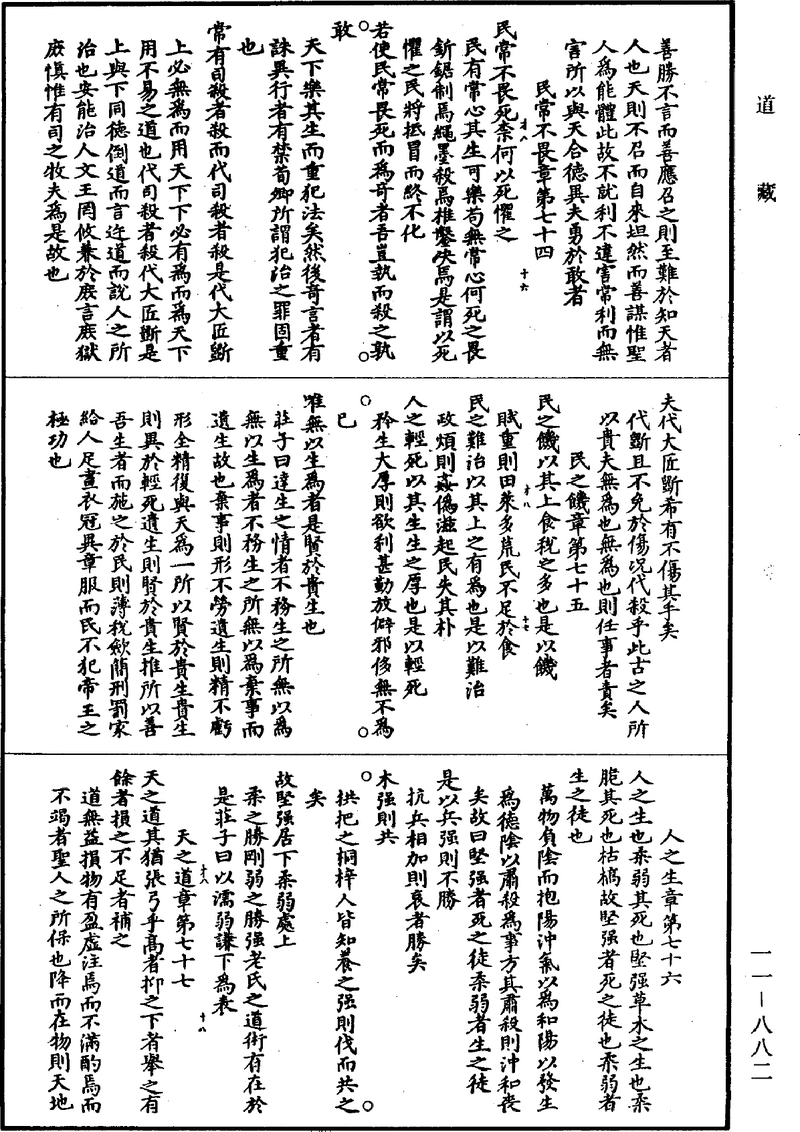 道藏
善勝不言而善應召之則至難於知天者
人也天則不召而自來坦然而善謀惟聖
人爲能體此故不就利不違害常利而無
害所以與天合德異夫勇於敢者
民常不畏章第七十四
民常不畏死柰何以死懼之
十八
民有常心其生可樂苟無常心何死之畏
十六
釿鋸制焉繩墨殺焉椎鑿決焉是謂以死
懼之民將抵冒而終不化
若使民常畏死而爲奇者吾豈執而殺之孰
敢
天下樂其生而重犯法矣然後奇言者有
誅異行者有禁荀卿所謂犯治之罪固重
也
常有司殺者殺而代司殺者殺是代大匠斲
上必無爲而用天下下必有爲而爲天下
用不易之道也代司殺者殺代大匠斲是
上與下同德倒道而言迕道而說人之所
治也安能治人文王罔攸兼於庶言庶獄
庶慎惟有司之牧夫爲是故也
夫代大匠斲希有不傷其手矣
代斲且不免於傷況代殺乎此古之人所
以貴夫無爲也無爲也則任事者責矣
民之饑章第七十五
民之饑以其上食稅之多也是以饑
十八
賦重則田萊多荒民不足於食
十七
民之難治以其上之有爲也是以難治
政煩則姦僞滋起民失其朴
人之輕死以其生生之厚也是以輕死
矜生大厚則欲利甚勤放僻邪侈無不爲
已
唯無以生爲者是賢於貴生也
莊子曰達生之情者不務生之所無以爲
無以生爲者不務生之所無以爲棄事而
遺生故也棄事則形不勞遺生則精不虧
形全精復與天爲一所以賢於貴生貴生
則異於輕死遺生則賢於貴生推所以善
吾生者而施之於民則薄稅斂簡刑罰家
給人足畫衣冠異章服而民不犯帝王之
極功也
人之生章第七十六
人之生也柔弱其死也堅强草木之生也柔
脆其死也枯槁故堅强者死之徒也柔弱者
生之徒也
萬物負陰而抱陽沖氣以爲和陽以發生
爲德陰以肅殺爲事方其肅殺則沖和喪
矣故曰堅强者死之徒柔弱者生之徒
是以兵强則不勝
抗兵相加則哀者勝矣
木强則共
拱把之桐梓人皆知養之强則伐而共之
矣
故堅强居下柔弱處上
柔之勝剛弱之勝强老氏之道術有在於
是莊子曰以濡弱謙下爲表
十八
天之道章第七十七
十八
天之道其猶張弓乎高者抑之下者舉之有
餘者損之不足者補之
道無益損物有盈虛注焉而不滿酌焉而
不竭者聖人之所保也降而在物則天地
一一—八八二